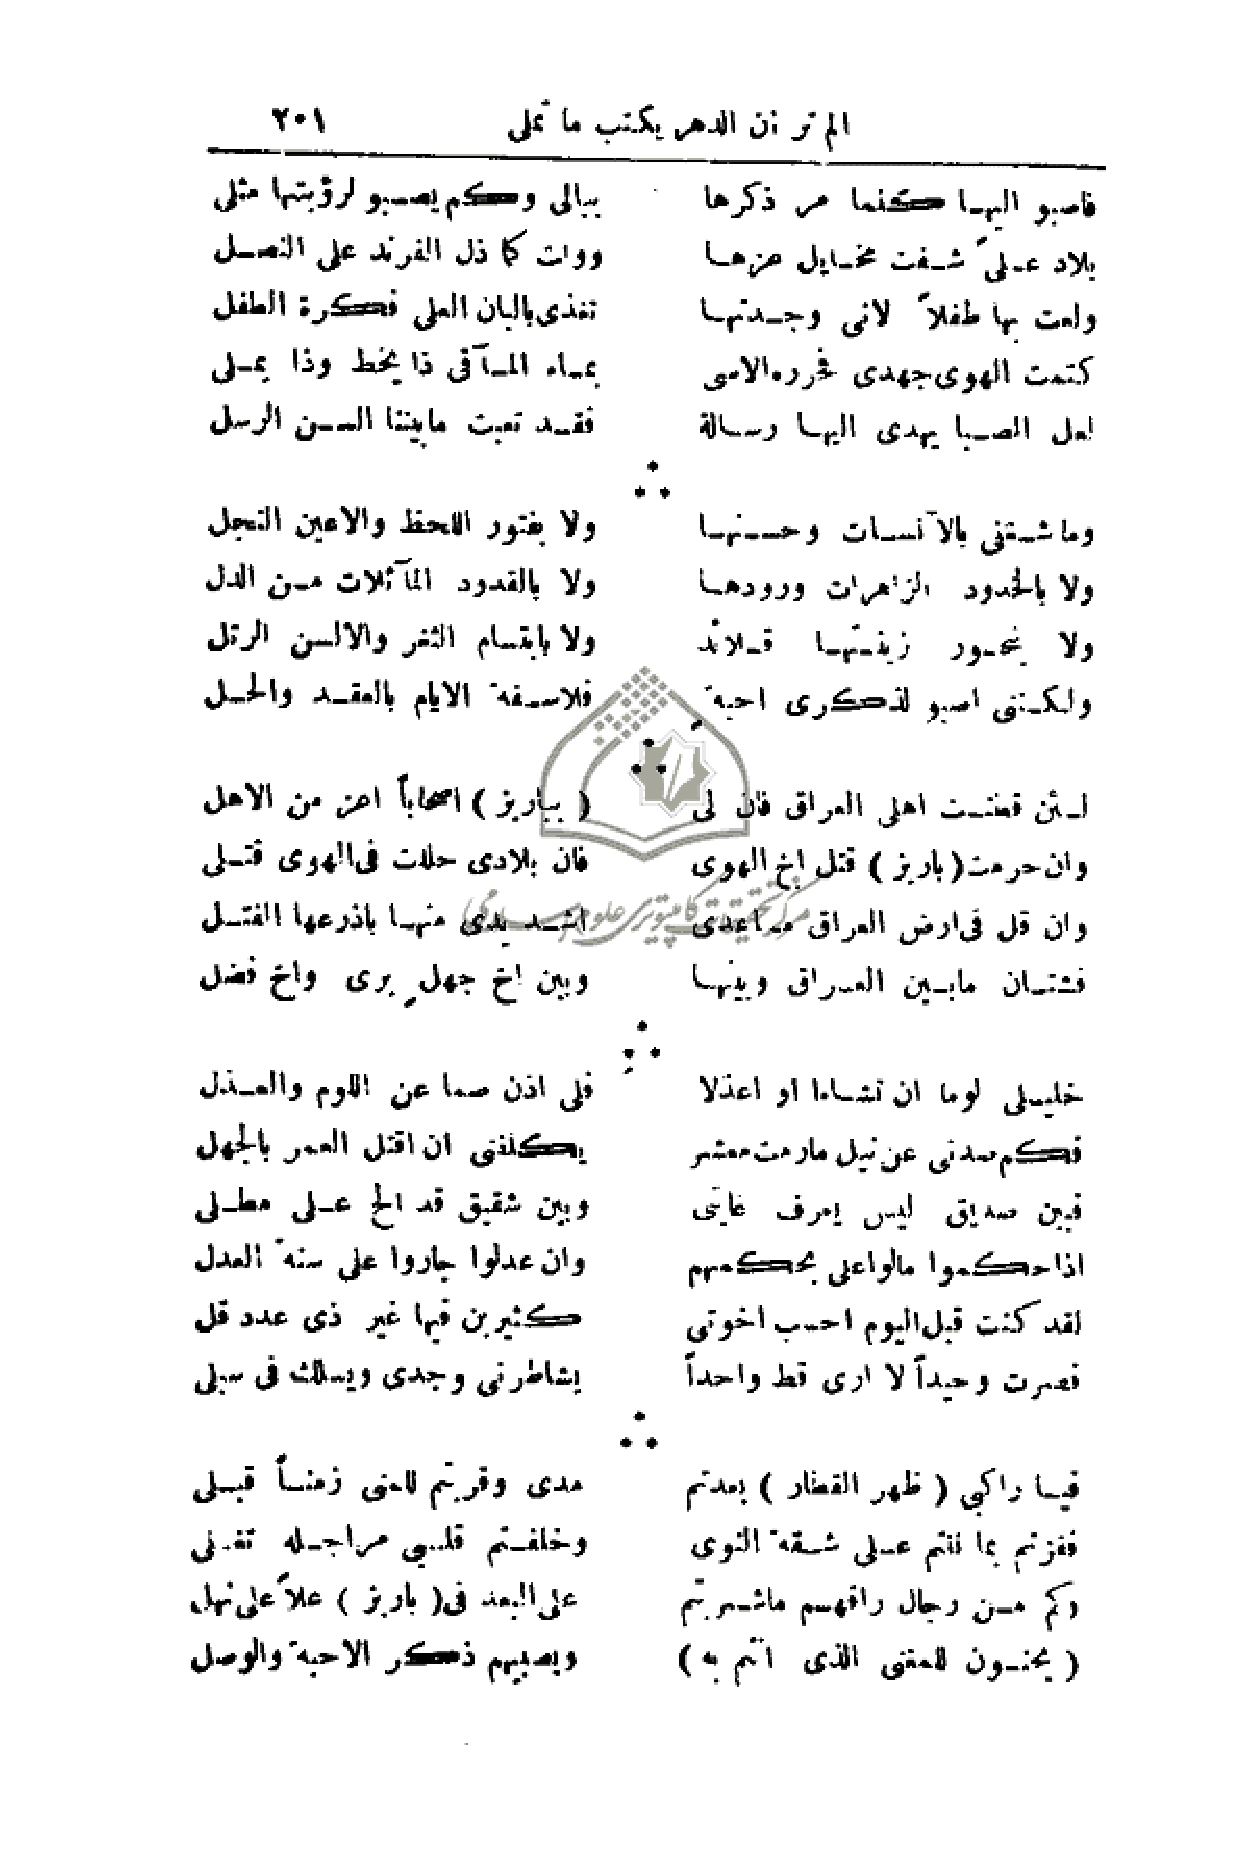 الم تر ان الدهر يكتب ما تملى ٢٠١
فاصبو اليها كلما مر ذكرها ببالى وكم يصبو لرؤيتها مثلى
بلاد على شفت مخايل عزها ووات كما ذل الفرند على النصل
ولعت بها طفلاً لانى وجدتها تغذى بالبان العلى فكرة الطفل
كتمت الهوى جهدى فحرره الاسى بماء المآقى ذا يخط وذا يملى
لعل الصبا يهدى اليها رسالة فقد تعبت مابيننا السن الرسل
وما شغفى بالآنسات وحسنها ولا بفتور اللحظ والاعين النجل
ولا بالخدود الزاهرات وورودها ولا بالقدود المآئلات من الدل
ولا بنحور زينتها قلائد ولا بابتسام الثغر والالسن الرتل
ولكننى اصبو لذكرى احبة فلاسفة الايام بالعقد والحل
لئن قطنت اهلى العراق فان لى ( بباريز ) اصحاباً اعز من الاهل
وان حرمت ( باريز ) قتل اخ الهوى فان بلادى حللت فى الهوى قتلى
وان قل فى ارض العراق مساعدى اشد يدى منها باذرعها الفتل
فشتان مابين العراق وبينها وبين اخ جهل يرى واخ فضل
خليلى لوما ان تشاءا او اعذلا فلى اذن صما عن اللوم والعذل
فكم صدنى عن نيل مارمت معشر يكلفنى ان اقتل العمر بالجهل
فبين صديق ليس يعرف غايتى وبين شقيق قد الح على مطلى
اذا حكموا مالوا على بحكمهم وان عدلوا جاروا على سنة العدل
لقد كنت قبل اليوم احسب اخوتى كثيرين فيها غير ذى عدد قل
فصرت وحيداً لا ارى قط واحداً يشاطرنى وجدى ويسلك فى سبلى
فيا راكبي ( ظهر القطار ) بعدتم مدى وقربتم للمنى زمناً قبلى
ففزتم بما نلتم على شقة النوى وخلفتم قلبى مراجله تغلى
وكم من رجال راقهم ماشربتم على البعد فى ( باريز ) علاً على نهل
( يحنون للمغنى الذى انتم به ) ويصبيهم ذكر الاحبة والوصل
مركز تحقيقات كامپيوترى علوم اسلامى